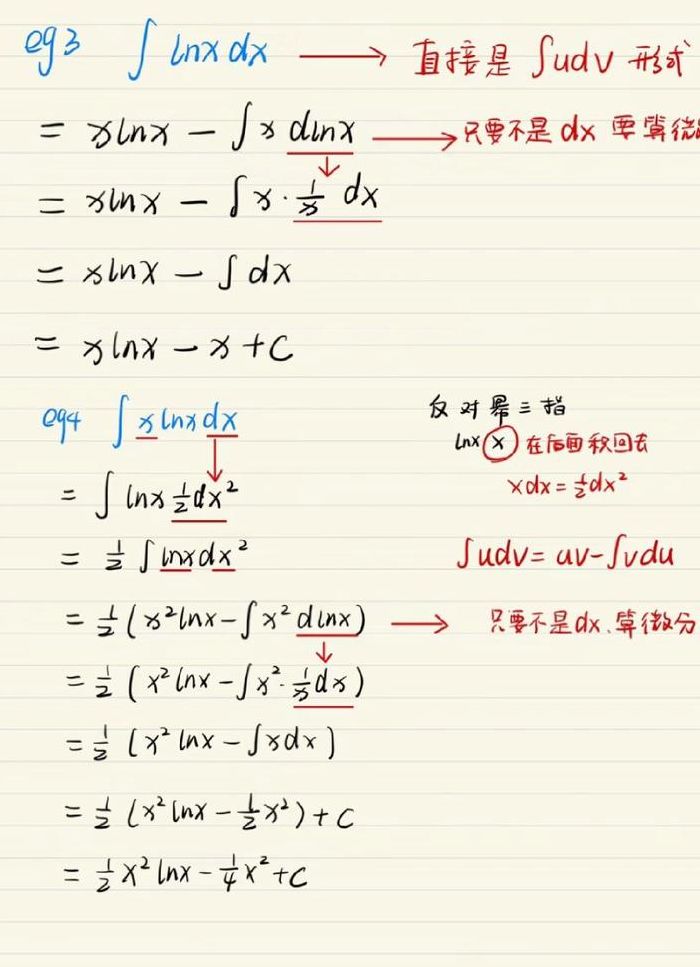 eg3 ∫ lnx dx → 直接是 ∫udv 形式
= xlnx − ∫ x dlnx → 只要不是 dx 要算微
= xlnx − ∫ x · 1/x dx
= xlnx − ∫ dx
= xlnx − x + C
eg4 ∫ x lnx dx
反对幂三指
lnx x 在后面积回去
xdx = 1/2 dx²
= ∫ lnx 1/2 dx²
= 1/2 ∫ lnx dx²
∫udv = uv − ∫vdu
= 1/2 (x² lnx − ∫ x² dlnx) → 只要不是dx、算微分
= 1/2 (x² lnx − ∫ x² · 1/x dx)
= 1/2 (x² lnx − ∫ x dx)
= 1/2 (x² lnx − 1/2 x²) + C
= 1/2 x² lnx − 1/4 x² + C